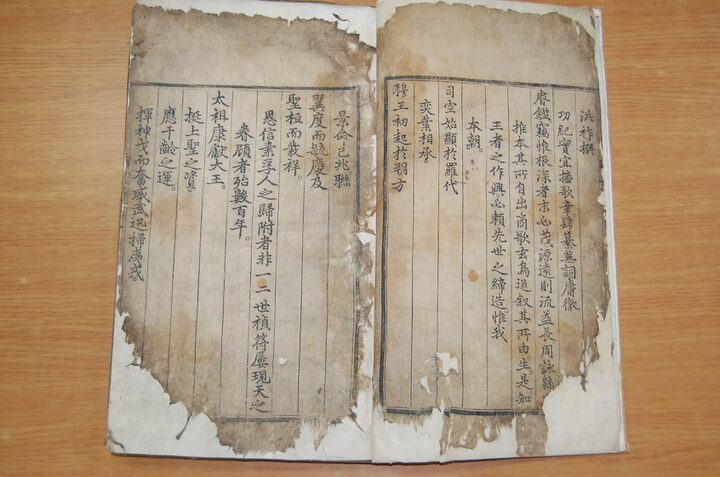 洪祚撰
功紀實宜播歌章肆纂蕪詞庸徹
睿鑑竊惟根深者末必茂源遠則流益長周詠緜
推本其所自出商歌玄鳥追叙其所由生。是知
王者之作興必賴先世之締造。惟我
本朝。
司空始顯於羅代
奕葉相承。
穆王初起於朔方
景命已兆聯
翼度而毓慶及
聖桓而發祥。
恩信素孚人之歸附者非一二世禎符屢現天之
眷顧者殆數百年。
太祖康獻大王。
挺上聖之資。
應千齡之運。
揮神戈而奮威武迅掃夷戎